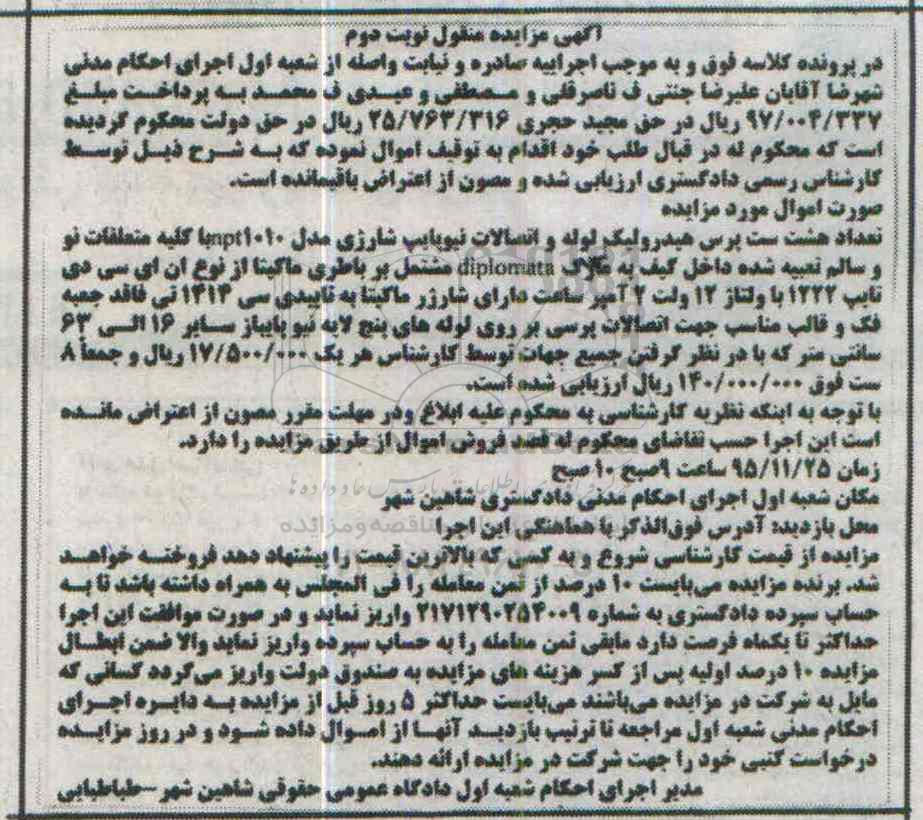 آگهی مزایده منقول نوبت دوم
در پرونده کلاسه فوق و به موجب اجراییه صادره و نیابت واصله از شعبه اول اجرای احکام مدنی
شهرضا آقایان علیرضا جنتی ف ناصرقلی و مصطفی و عیدی ف محمد به پرداخت مبلغ
۹۷/۰۰۴/۳۳۷ ریال در حق مجید حجری ۲۵/۷۶۳/۳۱۶ ریال در حق دولت محکوم گردیده
است که محکوم له در قبال طلب خود اقدام به توقیف اموال نموده که به شرح ذیل توسط
کارشناس رسمی دادگستری ارزیابی شده و مصون از اعتراض باقیمانده است.
صورت اموال مورد مزایده
تعداد هشت ست پرس هیدرولیک لوله و اتصالات نیوپایپ شارژی مدل npt۱۰۱۰با کلیه متعلقات نو
و سالم تعبیه شده داخل کیف به مارک diplomata مشتمل بر باطری ماکیتا از نوع ان ای سی دی
تایپ ۱۲۲۲ با ولتاژ ۱۲ ولت ۲ آمپر ساعت دارای شارژر ماکیتا به تاییدی سی ۱۴۱۴ تی فاقد جعبه
فک و قالب مناسب جهت اتصالات پرسی بر روی لوله های پنج لایه نیو پایپاز سایز ۱۶ الی ۶۳
سانتی متر که با در نظر گرفتن جمیع جهات توسط کارشناس هر یک ۱۷/۵۰۰/۰۰۰ ریال و جمعاً ۸
ست فوق ۱۴۰/۰۰۰/۰۰۰ ریال ارزیابی شده است.
با توجه به اینکه نظریه کارشناسی به محکوم علیه ابلاغ ودر مهلت مقرر مصون از اعتراض مانده
است این اجرا حسب تقاضای محکوم له قصد فروش اموال از طریق مزایده را دارد.
زمان ۹۵/۱۱/۲۵ ساعت ۹صبح ۱۰ صبح
مکان شعبه اول اجرای احکام مدنی دادگستری شاهین شهر
محل بازدید: آدرس فوق‌الذکر با هماهنگی این اجرا
مزایده از قیمت کارشناسی شروع و به کسی که بالاترین قیمت را پیشنهاد دهد فروخته خواهد
شد. برنده مزایده می‌بایست ۱۰ درصد از ثمن معامله را فی المجلس به همراه داشته باشد تا به
حساب سپرده دادگستری به شماره ۲۱۷۱۲۹۰۲۵۴۰۰۹ واریز نماید و در صورت موافقت این اجرا
حداکثر تا یکماه فرصت دارد مابقی ثمن معامله را به حساب سپرده واریز نماید والا ضمن ابطال
مزایده ۱۰ درصد اولیه پس از کسر هزینه های مزایده به صندوق دولت واریز می‌گردد کسانی که
مایل به شرکت در مزایده می‌باشند می‌بایست حداکثر ۵ روز قبل از مزایده به دایره اجرای
احکام مدنی شعبه اول مراجعه تا ترتیب بازدید آنها از اموال داده شود و در روز مزایده
درخواست کتبی خود را جهت شرکت در مزایده ارائه دهند.
مدیر اجرای احکام شعبه اول دادگاه عمومی حقوقی شاهین شهر –طباطبایی